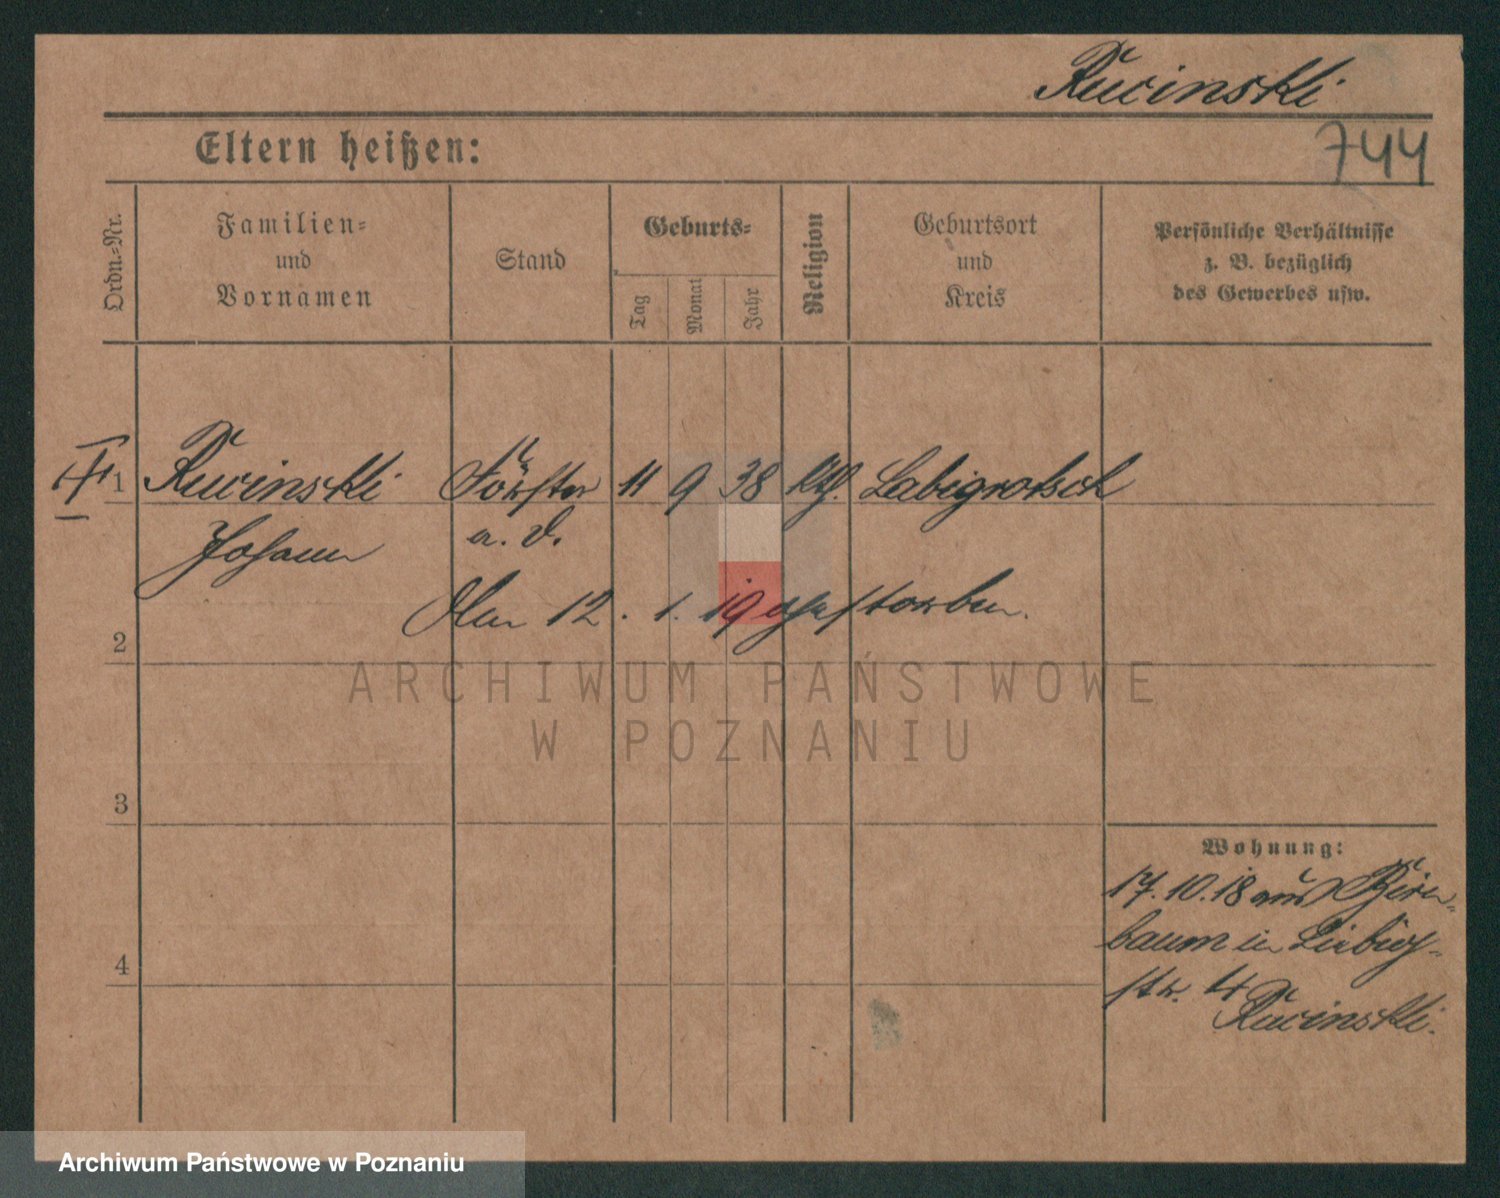 Rucinski
744
Eltern heißen:
Ordn.-Nr.
Familien-
und
Vornamen
Stand
Geburts-
Tag
Monat
Jahr
Religion
Geburtsort
und
Kreis
Persönliche Verhältnisse
z. B. bezüglich
des Gewerbes usw.
1 Rucinski Förster 11 9 38 kth. Labigrotsch
Johann a. D.
Am 12. 1. 19 gestorben.
2
ARCHIWUM PAŃSTWOWE
W POZNANIU
3
Wohnung:
17.10.18 aus Birn-
baum in Liebig-
4
str. 4
Rucinski.
Archiwum Państwowe w Poznaniu